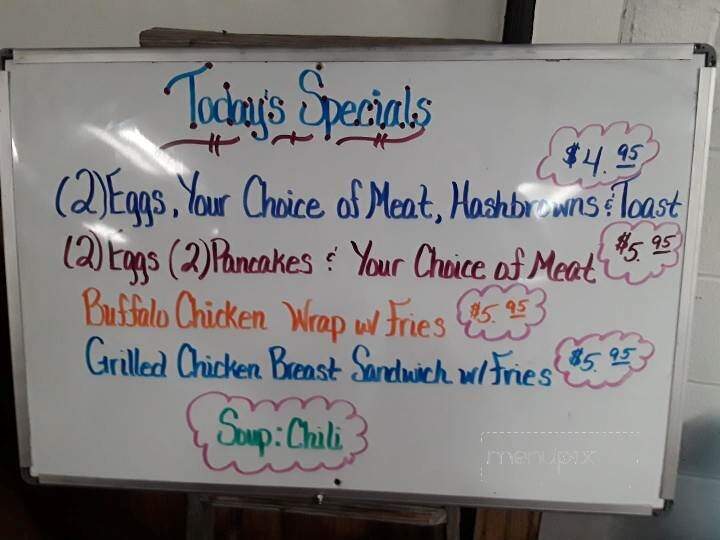 Today's Specials
$4.95
(2) Eggs, Your Choice of Meat, Hashbrowns & Toast
(2) Eggs (2) Pancakes & Your Choice of Meat $5.95
Buffalo Chicken Wrap w/ Fries $5.95
Grilled Chicken Breast Sandwich w/ Fries $5.95
Soup: Chili
menupix